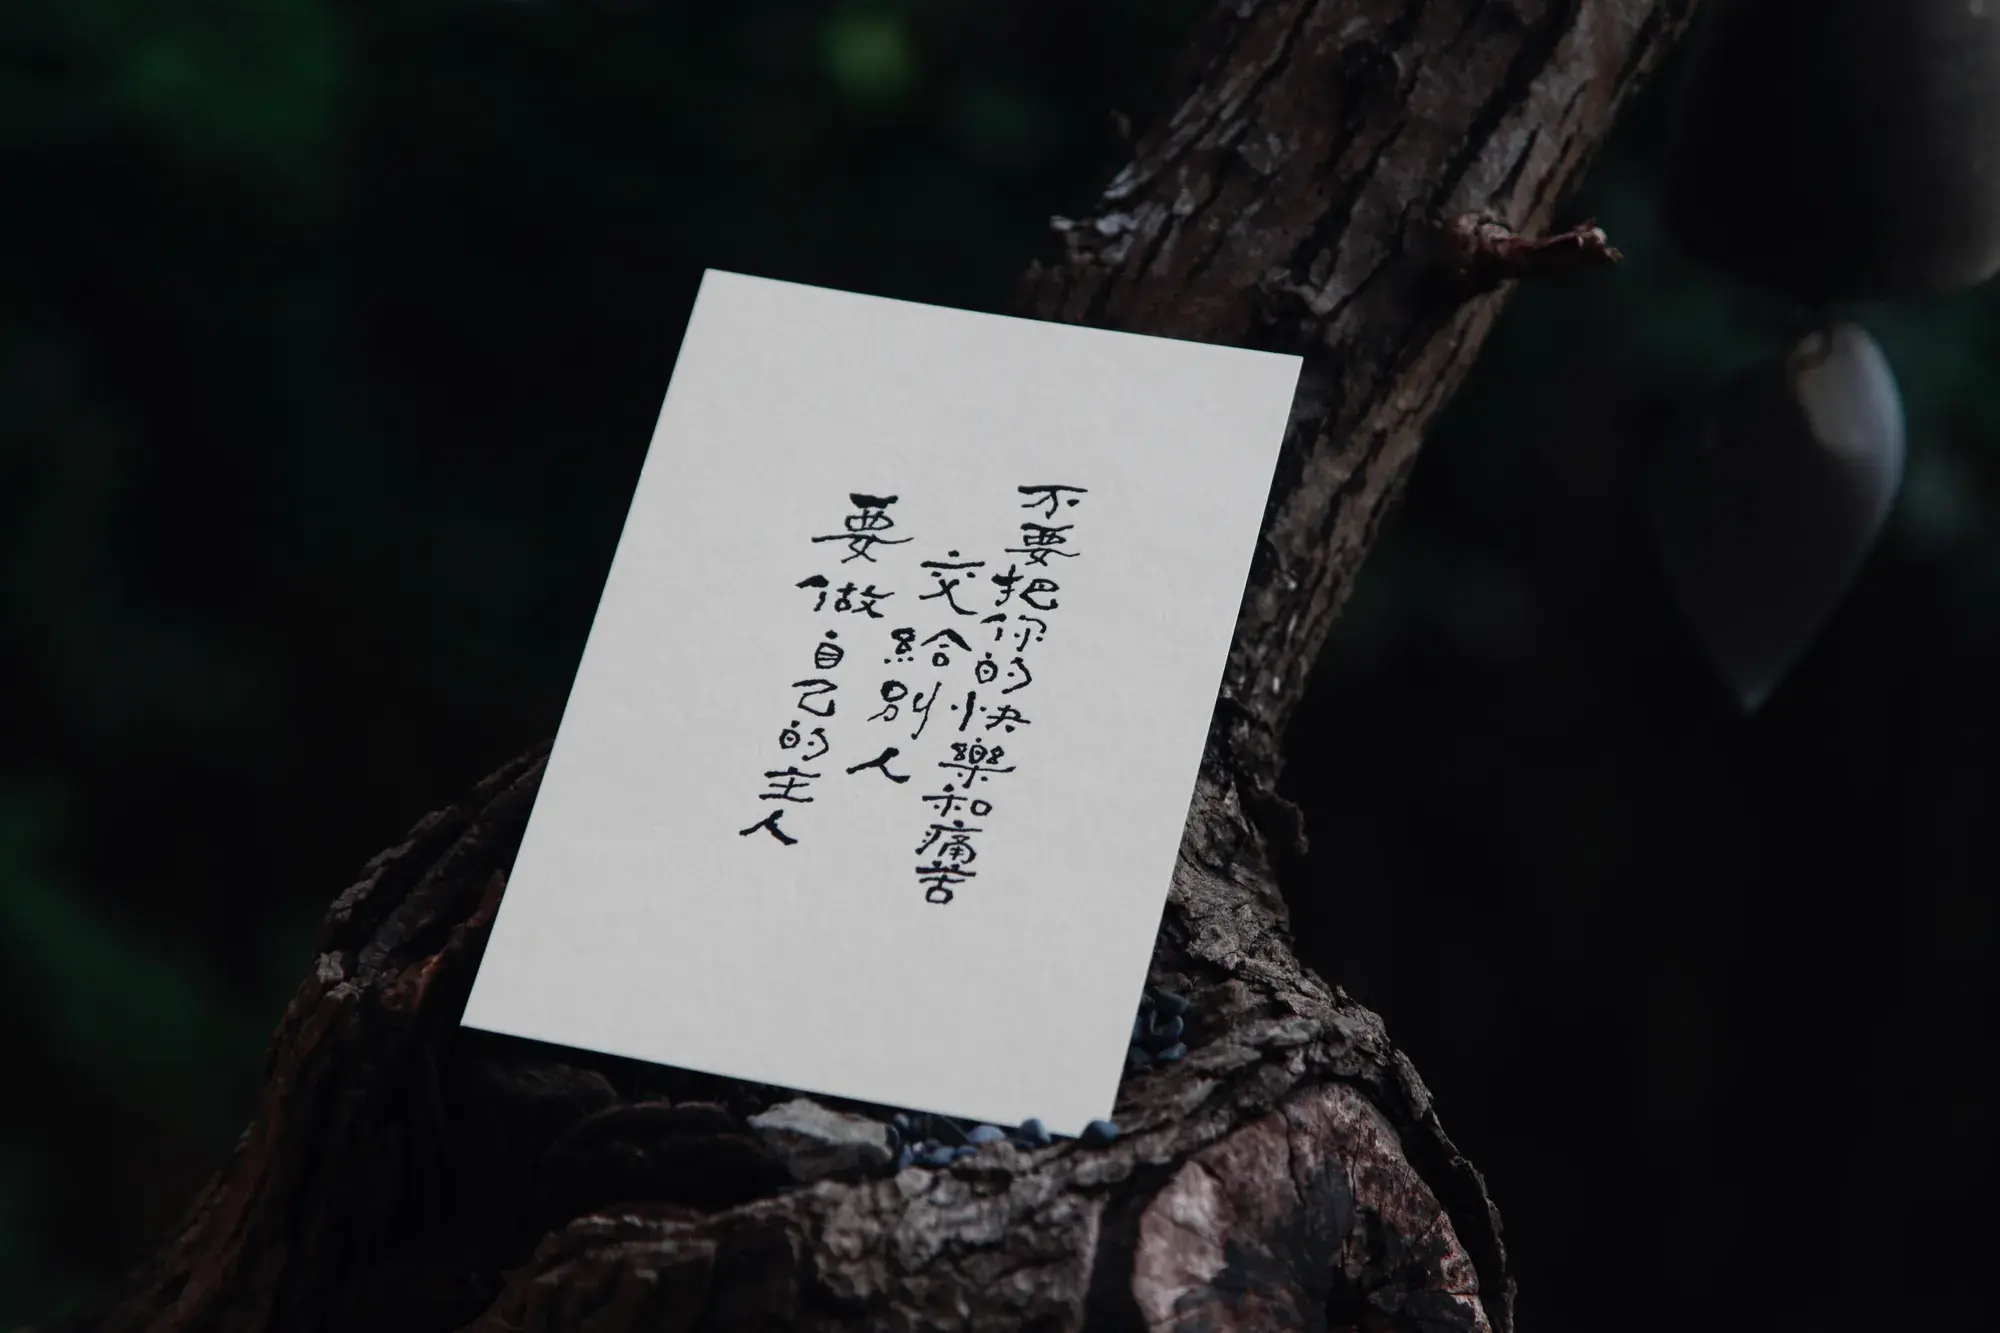 不要把你的快樂和痛苦
交給別人
要做自己的主人